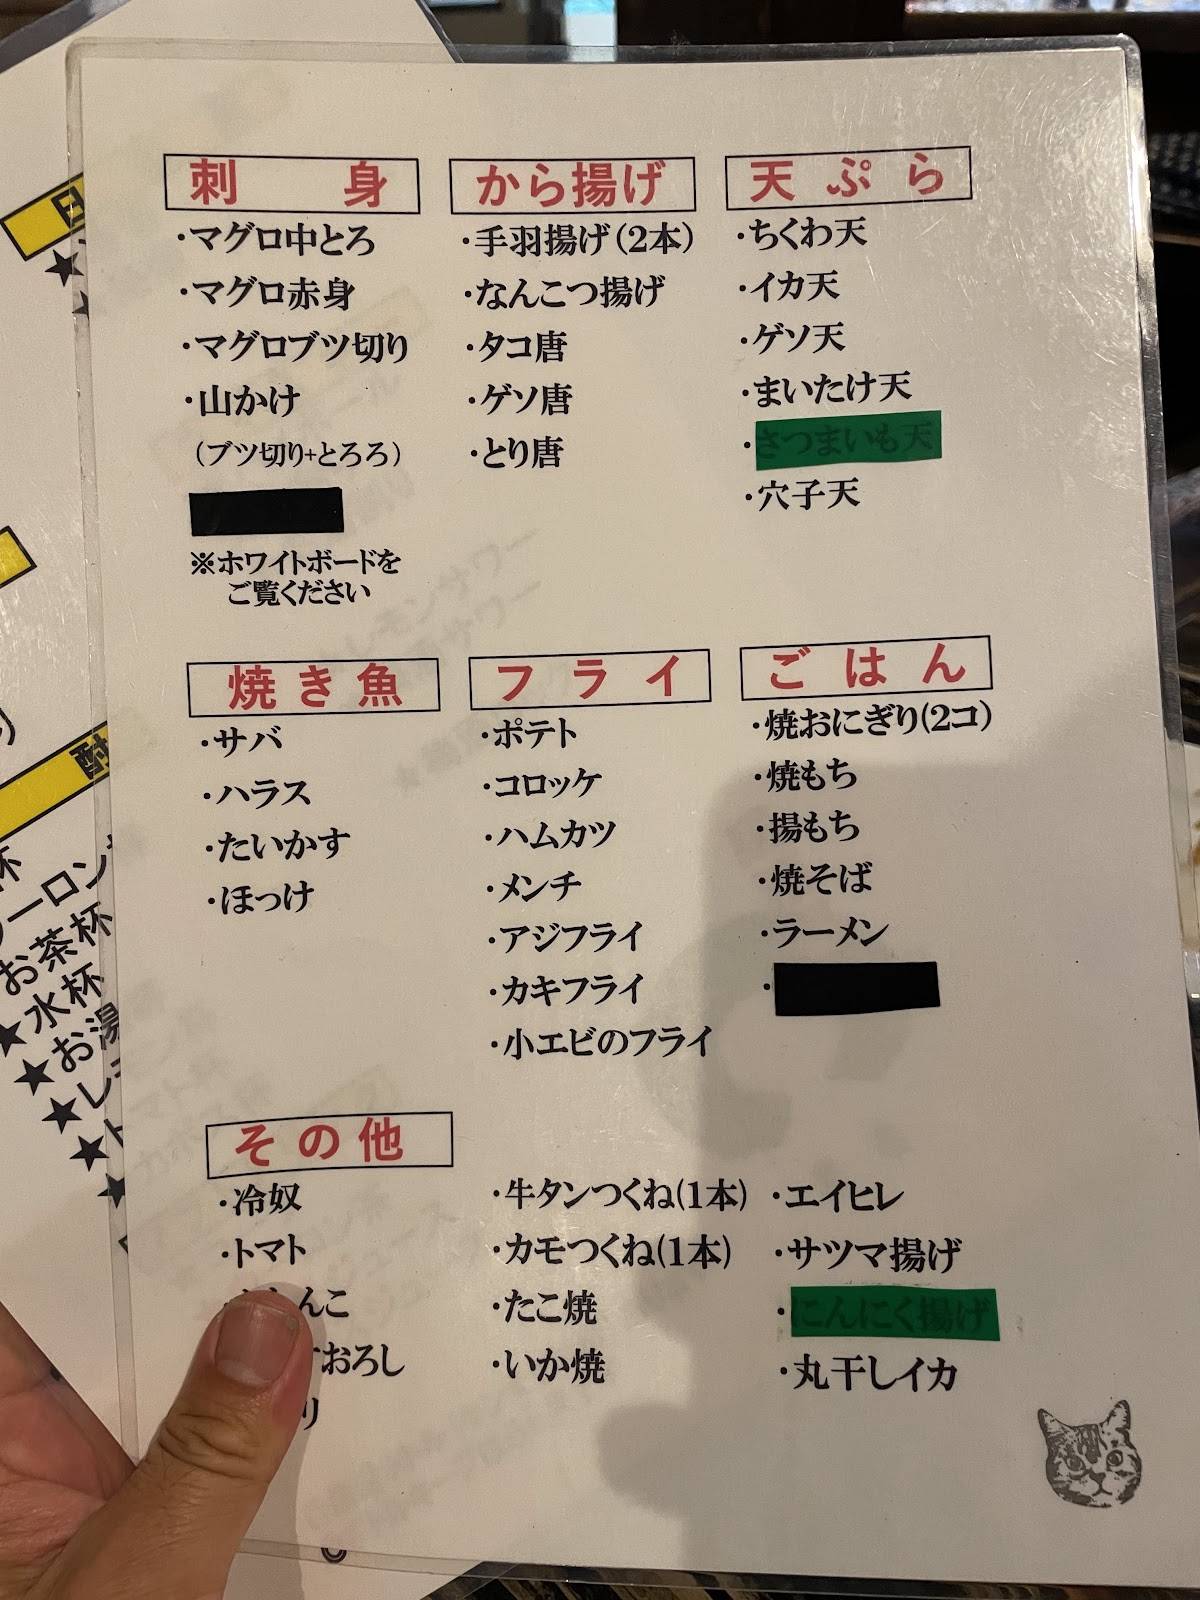 刺身
・マグロ中とろ
・マグロ赤身
・マグロブツ切り
・山かけ
（ブツ切り+とろろ）
※ホワイトボードを
ご覧ください
から揚げ
・手羽揚げ（2本）
・なんこつ揚げ
・タコ唐
・ゲソ唐
・とり唐
天ぷら
・ちくわ天
・イカ天
・ゲソ天
・まいたけ天
・さつまいも天
・穴子天
焼き魚
・サバ
・ハラス
・たいかす
・ほっけ
フライ
・ポテト
・コロッケ
・ハムカツ
・メンチ
・アジフライ
・カキフライ
・小エビのフライ
ごはん
・焼おにぎり(2コ)
・焼もち
・揚もち
・焼そば
・ラーメン
その他
・冷奴
・トマト
んこ
おろし
り
・牛タンつくね(1本)
・カモつくね(1本)
・たこ焼
・いか焼
・エイヒレ
・サツマ揚げ
・にんにく揚げ
・丸干しイカ
お茶杯
★水杯
★お湯